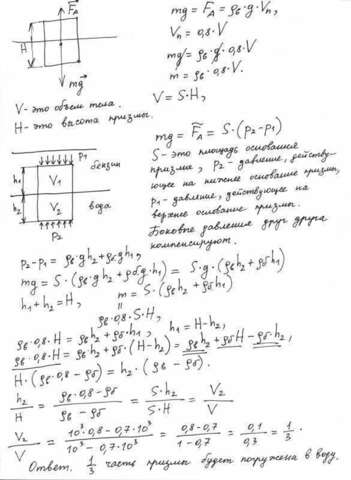 F_A
mg = F_A = ρв·g·Vп,
Vп = 0,8·V
H
mg = ρв·g·0,8·V
m = ρв·0,8·V.
mg
V = S·H,
V - это объем тела.
H - это высота призмы.
mg = F_A = S·(p2-p1)
p1
бензин
S - это площадь основания
призмы, p2 - давление, действу-
ющее на нижнее основание призмы,
h1
V1
p1 - давление, действующее на
верхнее основание призмы.
вода
h2
V2
Боковые давления друг друга
компенсируют.
p2
p2-p1 = ρв·gh2+ρб·gh1,
mg = S·(ρв·gh2+ρб·g·h1) = S·g·(ρвh2+ρбh1)
h1+h2 = H, m = S·(ρвh2+ρбh1)
=
ρв·0,8·S·H,
ρв·0,8·H = ρвh2+ρб·h1, h1 = H-h2,
ρв·0,8·H = ρвh2+ρб·(H-h2) = ρвh2+ρбH-ρбh2,
H·(ρв·0,8-ρб) = h2·(ρв-ρб).
h2/H = (ρв·0,8-ρб)/(ρв-ρб) = (S·h2)/(S·H) = V2/V
V2/V = (10³·0,8-0,7·10³)/(10³-0,7·10³) = (0,8-0,7)/(1-0,7) = 0,1/0,3 = 1/3.
Ответ. 1/3 часть призмы будет погружена в воду.